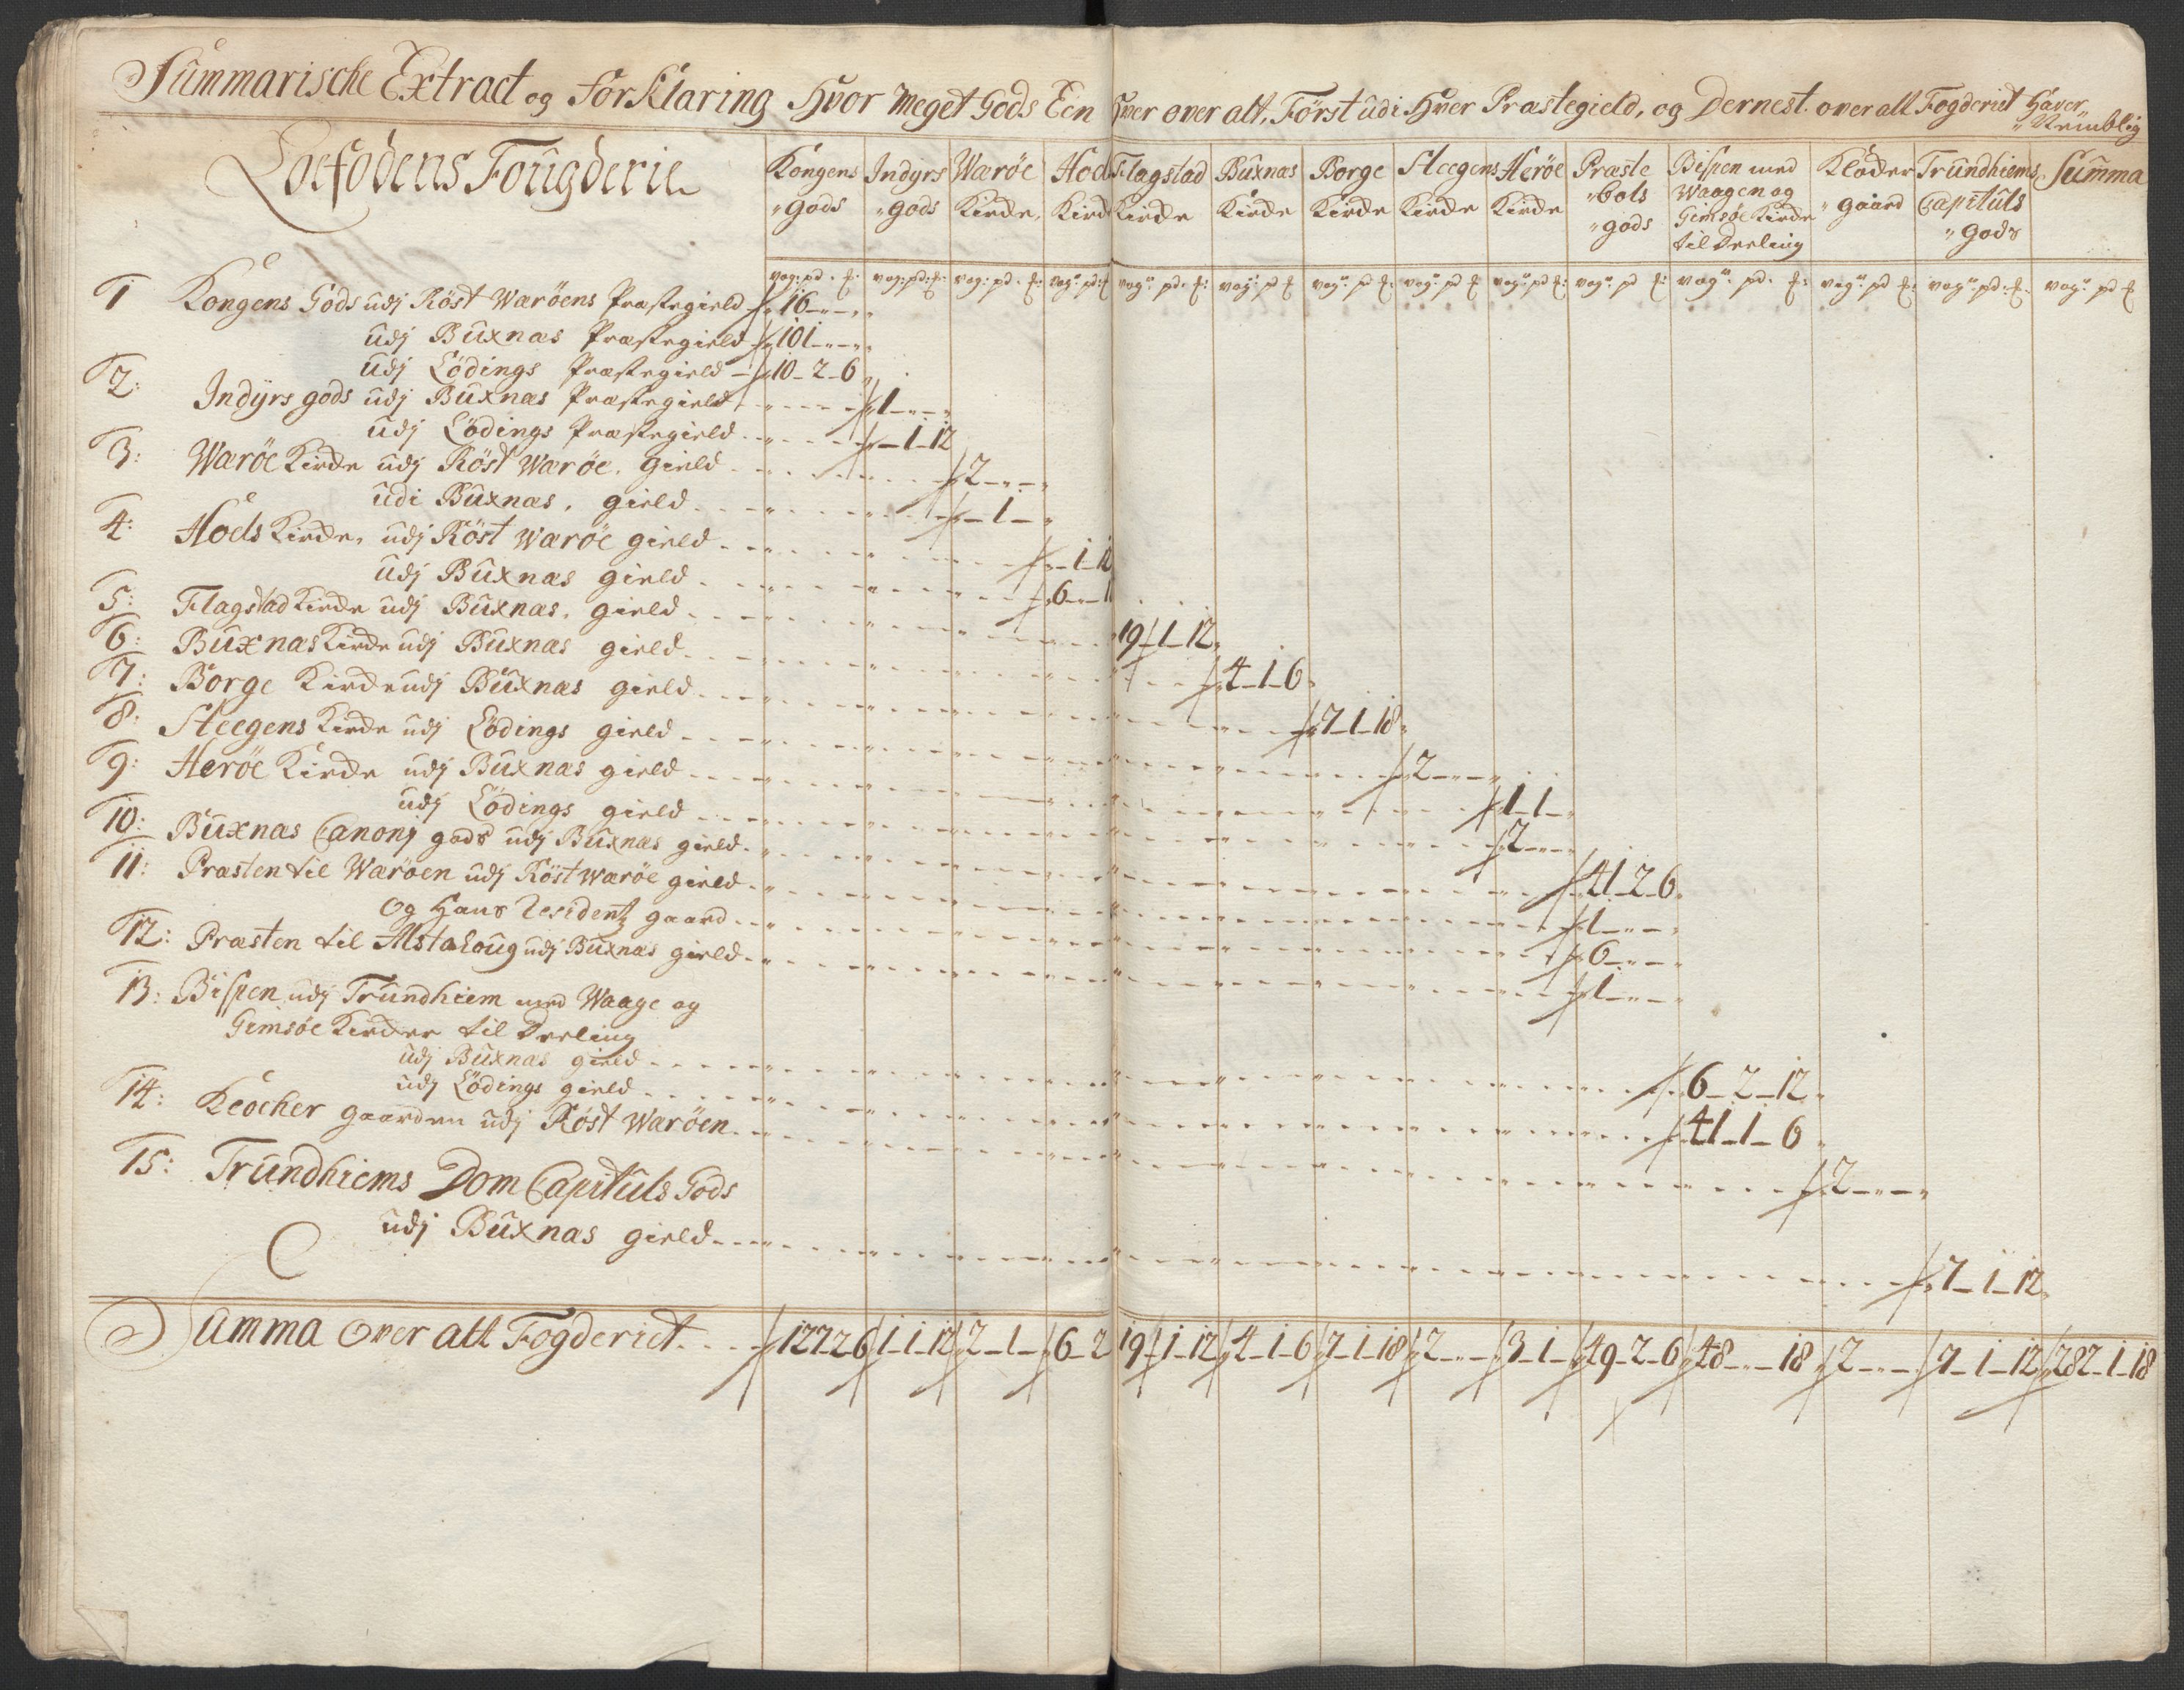 Summarische Extract og forKlaring Hvor meget Gods Een Hver over alt, Först udi Hver Præstegield, og Dernest over alt Fogderiet Haver
Nemblig
Loefodens Fougderie
Kongens gods
Indÿrs gods
Waröe Kirche
Hod Kirch
Flagstad Kirche
Buxnæs Kirche
Borge Kirche
Steegens Kirche
Heröe Kirche
Præste bols gods
Bispen med Waagen og Gimsöe Kirche til Deeling
gaard
Trundhiems Capituls gods
Summa
vog: pd: f: vog: pd: f: vog: pd: f: vog: pd: f vog: pd: f: vog: pd f vog: pd f: vog: pd f vog: pd f: vog: pd f: vog: pd: f: vog: pd f: vog: pd: f: vog: pd f
1 Kongens Gods udj Röst Waröens Præstegield 16 - -
udj Buxnæs Præstegield 101 - -
udj Lödings Præstegield 10 - 2 - 6
2: Indÿrs gods udj Buxnæs Præstegield 1 - -
udj Lödings Præstegield - 1 - 12
3: Waröe Kirche udj Röst Waröe gield 2 - -
udi Buxnæs gield - 1 -
4: Hods Kirche udj Röst Waröe gield - 1 - 12
udj Buxnæs gield 6 - - 1
5: Flagstad Kirche udj Buxnæs gield 19 - 1 - 12
6: Buxnæs Kirche udj Buxnæs gield 4 - 1 - 6
7: Borge Kirche udj Buxnæs gield 7 - 1 - 18
8: Steegens Kirche udj Lödings gield 2 - -
9: Heröe Kirche udj Buxnæs gield 1 - 1 -
udj Lödings gield 2 - -
10: Buxnæs Canonj gods udj Buxnæs gield 41 - 2 - 6
11: Præsten til Waröen udj Röst Waröe gield 1 - -
Og Hans Residentz gaard 6 - -
12: Præsten til Alstahoug udj Buxnæs gield 1 - -
13: Bispen udj Trundhiem med Waage og
Gimsöe Kircher til Deeling
udj Buxnæs gield 6 - 2 - 12
udj Lödings gield 41 - 1 - 6
14: gaarden udj Röst Waröen 2 - -
15: Trundhiems Dom Capituls Gods
udj Buxnæs gield 7 - 1 - 12
Summa Over alt Fogderiet 127 2 6 1 - 1 - 12 2 - 1 - 6 - 2 19 - 1 - 12 4 - 1 - 6 7 - 1 - 18 2 - - 3 - 1 - 49 - 2 - 6 48 - - 18 2 - - 7 - 1 - 12 282 - 1 - 18